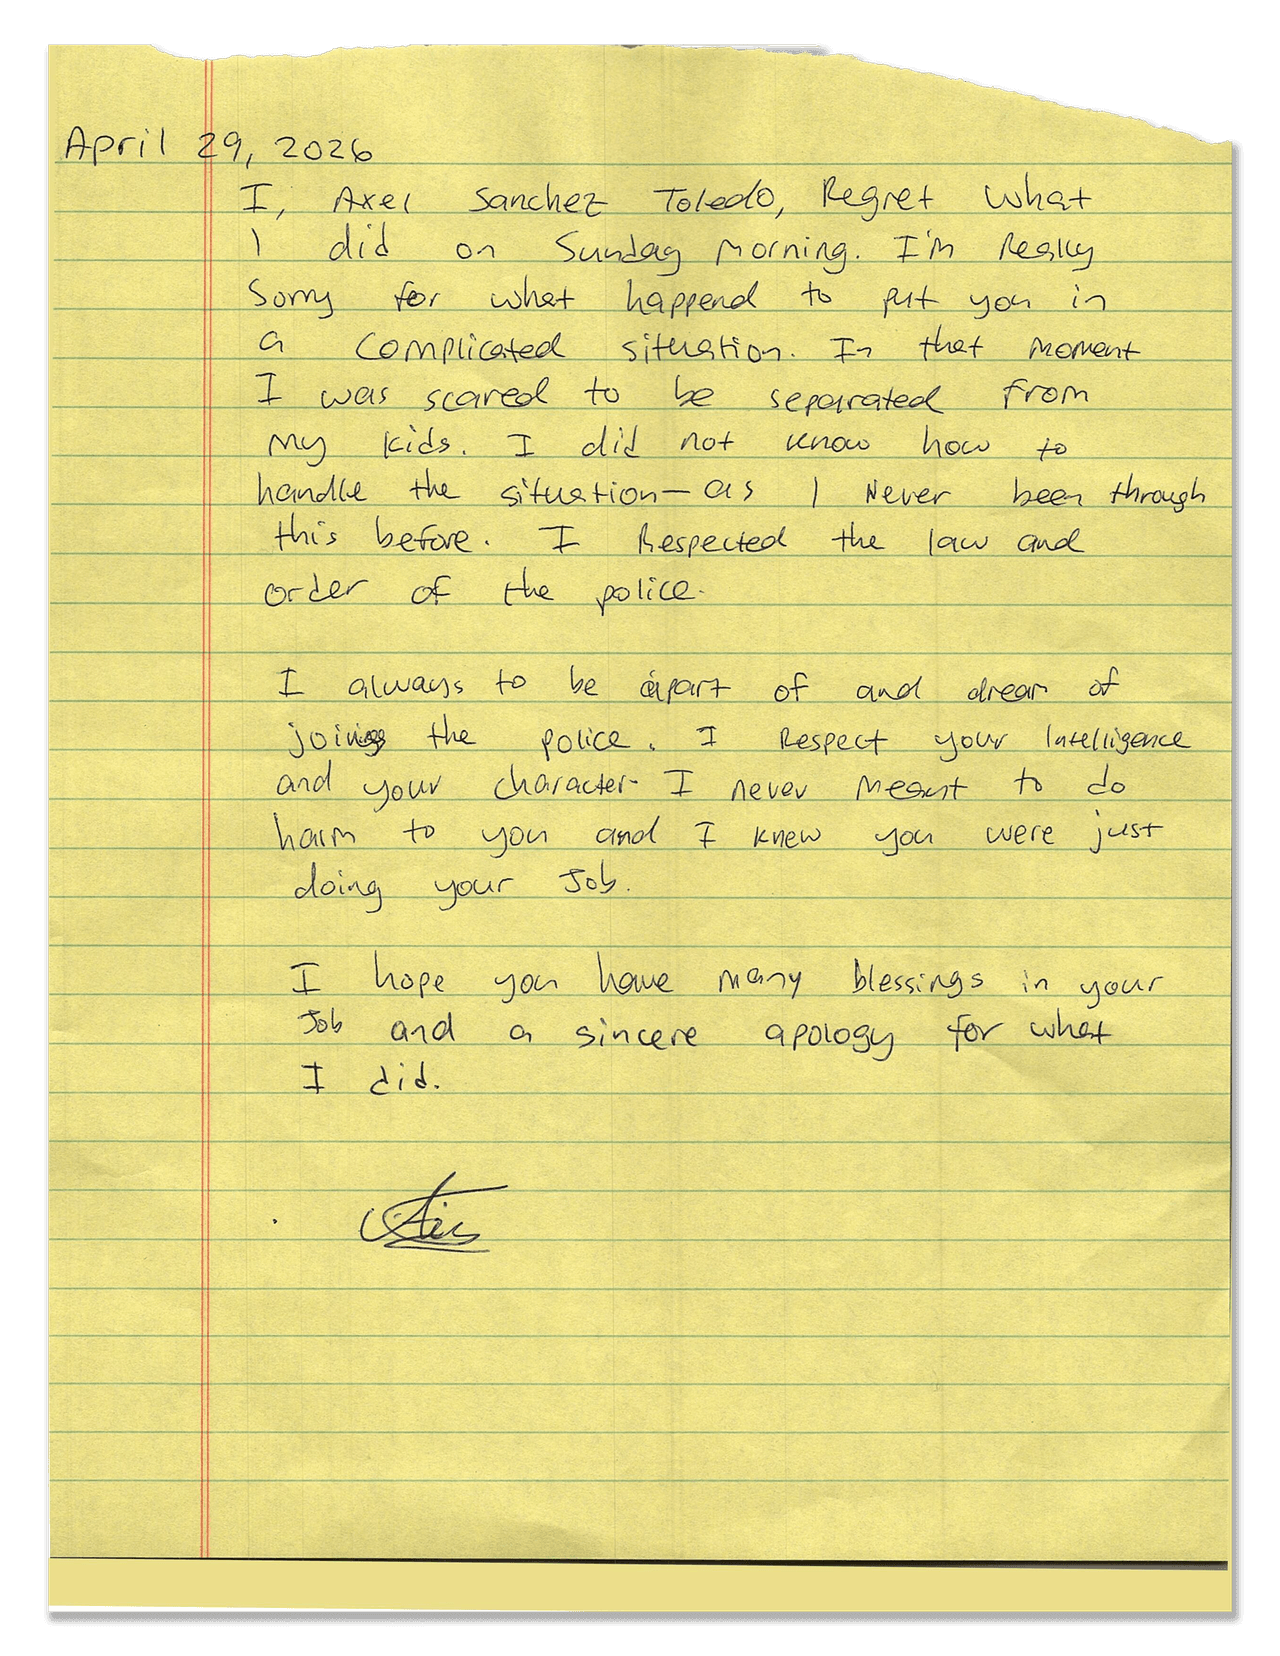 April 29, 2026
I, Axel Sanchez Toledo, Regret what
I did on Sunday morning. I'm Really
Sorry for what happend to put you in
a complicated situation. In that moment
I was scared to be separated from
my kids. I did not know how to
handle the situation— as I Never been through
this before. I Respected the law and
order of the police.
I always to be apart of and dream of
joining the police. I Respect your Intelligence
and your character. I never meant to do
harm to you and I knew you were just
doing your Job.
I hope you have many blessings in your
Job and a sincere apology for what
I did.